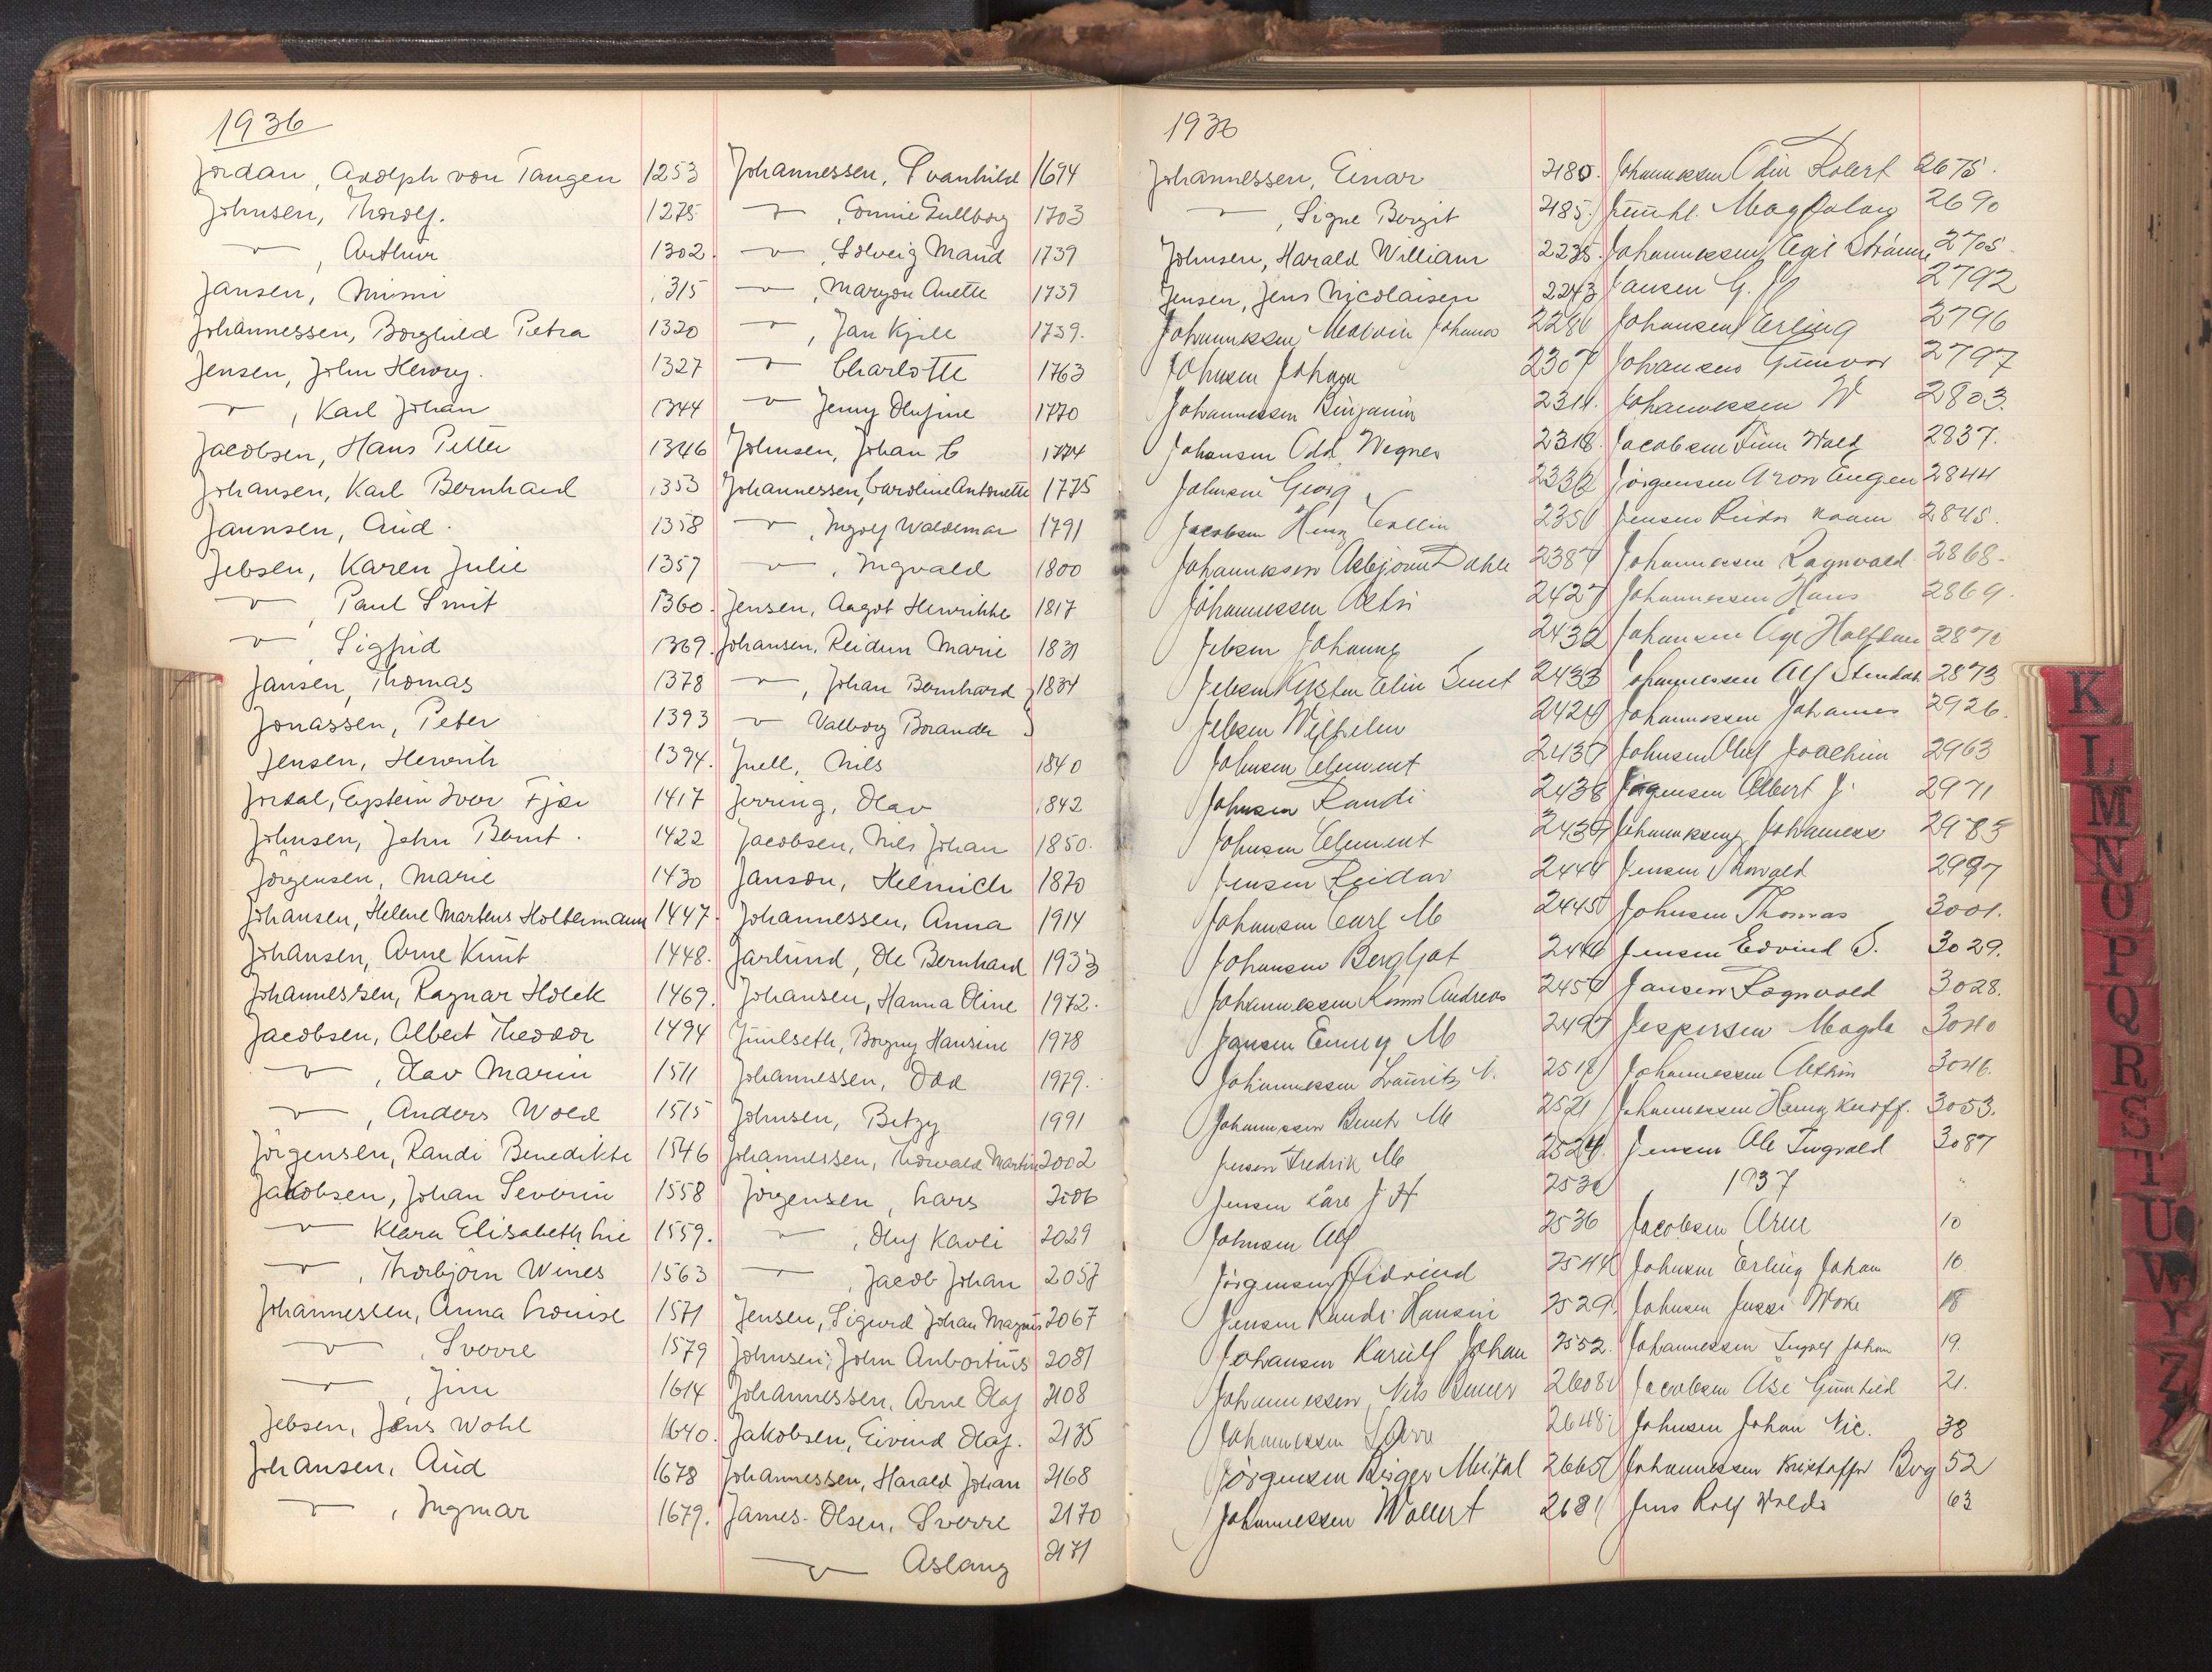 1936
Jordan, Adolph von Tangen 1253
Johnsen, Thorolf. 1275
—"—, Arthur 1302.
Jansen, Mimi 1315
Johannessen, Borghild Petra 1320
Jensen, John Henry. 1327
—"—, Karl Johan 1344
Jacobsen, Hans Petter 1346
Johansen, Karl Bernhard 1353
Jannsen, Aud. 1358
Jebsen, Karen Julie 1359
—"—, Paul Smit 1360.
—"—, Sigfrid 1369.
Jansen, Thomas 1378
Jonassen, Peter 1393
Jensen, Henrik 1394.
Jordal, Eystein Iver 1417
Johnsen, John Bernt. 1422
Jörgensen, Marie 1430
Johansen, Helene Martens Holtermann 1447.
Johansen, Arne Knut 1448.
Johannessen, Ragnar Holck 1469.
Jacobsen, Albert Theodor 1494
—"—, Olav Marin 1511
—"—, Anders Wold 1515
Jörgensen, Randi Benedikte 1546
Jakobsen, Johan Severin 1558
—"— Klara Elisabeth Lie 1559.
—"—, Thorbjörn Wines 1563
Johannessen, Anna Louise 1571
—"—, Sverre 1579
—"—, Jim 1614
Jebsen, Jens Wohl 1640.
Johansen, Aud 1678
—"—, Ingmar 1679.
Johannessen, Svanhild 1694
—"—, Connie Gullborg 1703
—"—, Solveig Maud 1739
—"—, Maryon Anette 1739
—"—, Jan Kjell 1739.
—"— Charlotte 1763
—"— Jenny Olufine 1770
Johnsen, Johan C 1774
Johannessen, Caroline Antonette 1775
—"—, Ingolf Waldemar 1791
—"—, Ingvald 1800
Jensen, Aagot Henrikke 1817
Johansen, Reidun Marie 1831
—"—, Johan Bernhard } 1834
—"— Valborg Borander }
Juell, Nils 1840
Jerring, Olav 1842
Jacobsen, Nils Johan 1850.
Janson, Helmich 1870
Johannessen, Anna 1914
Jarlund, Ole Bernhard 1933
Johansen, Hanna Oline 1972.
Juulseth, Borgny Hansine 1978
Johannessen, Odd 1979.
Johnsen, Betzy 1991
Johannessen, Thorvald Martin 2002
Jörgensen, Lars 2006
—"—, Oluf Kavli 2029
—"—, Jacob Johan 2057
Jensen, Sigurd Johan Magnus 2067
Johnsen, John Anbortius 2081
Johannessen, Arne Olaf 2108
Jakobsen, Eivind Olaf. 2135
Johannessen, Harald Johan 2168
James-Olsen, Sverre 2170
—"— Aslaug 2171
1936
Johannessen, Einar 2180.
—"—, Signe Borgit 2185.
Johnsen, Harald William 2235.
Jensen, Jens Nicolaisen 2243
Johannessen Johannes 2281
Johnsen Johan 2307
Johannessen Benjamin 2311.
Johansen Odd Wegner 2318.
Johnsen Georg 2332
Jacobsen Henry Collin 2351
Johannessen Asbjörn Dahle 2387
Johannessen Astri 2427
Jebsen Johanne 2432
Jebsen Elin Smit 2433
Jebsen Wilhelm 2424
Johnsen Clement 2437
Johnsen Randi 2438
Johnsen Clement 2439
Jensen Reidar 2444
Johansen Carl M 2445
Johansen Bergljot 2446
Johannessen Andreas 2457
Jansen Emmy M 2497
Johannessen Lauritz 2517
Johannessen Bernt M 2521
Jensen Fredrik M 2524.
Jensen Kåre J H 2530
Johnsen Alf 2536
Jörgensen Eidvind 2544
Jensen Randi Hansine 2529.
Johansen Karulf Johan 2552.
Johannessen Nils 2608
Johannessen 2648.
Jörgensen Birger Meikal 2665
Johannessen Wollert 2681
Johannessen Odin Robert 2675.
Juuhl. Magdalon 2690
Johannessen Egil 2705
Jansen G. 2792
Johansen Erling 2796
Johansen Gunvor 2797
Johannessen W 2803.
Jacobsen Finn Wald 2837.
Jörgensen Aron Eugen 2844
Jensen Reidar 2845.
Johannessen Ragnvald 2868.
Johannessen Hans 2869.
Johansen Åge Halfdan 2870
Johannessen Alf 2873
Johannessen Johannes 2926.
Johnsen Oluf Joachim 2963
Jörgensen Albert J. 2971
Johannessen Johannes 2985
Jensen Thorvald 2997
Johnsen Thomas 3001.
Jensen Edvind S. 3029.
Jansen Ragnvald 3028.
Jespersen Magda 3040
Johannessen 3046.
Johannessen Henry Knoff. 3053.
Jensen Ole Ingvald 3087
1937
Jacobsen Arne 10
Johnsen Erling Johan 10
Johnsen Jussi 18
Johannessen Ingolf Johan 19.
Jacobsen Åse Gunhild 21.
Johnsen Johan Nic. 38
Johannessen Kristoffer Borg 52
Jens Rolf 63
K
L
M
N
O
P
Q
R
S
T
U
W
Y
Z